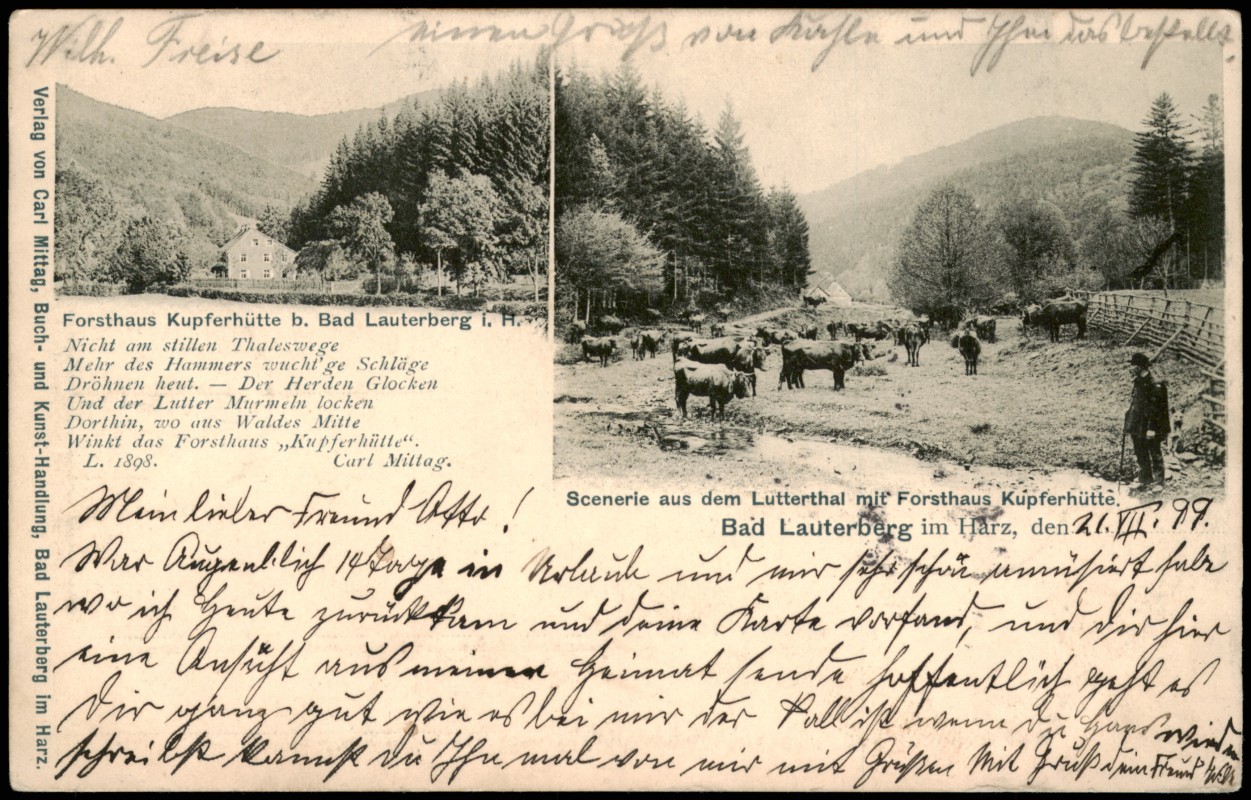 Wilh. Freise
einen Gruß von Kuhle und Ihm das bestellst.
Verlag von Carl Mittag, Buch- und Kunst-Handlung, Bad Lauterberg im Harz.
Forsthaus Kupferhütte b. Bad Lauterberg i. H.
Nicht am stillen Thaleswege
Mehr des Hammers wucht'ge Schläge
Dröhnen heut. — Der Herden Glocken
Und der Lutter Murmeln locken
Dorthin, wo aus Waldes Mitte
Winkt das Forsthaus „Kupferhütte“.
L. 1898. Carl Mittag.
Scenerie aus dem Lutterthal mit Forsthaus Kupferhütte.
Bad Lauterberg im Harz, den 21. VII. 99.
Mein lieber Freund Otto!
War Augenblich 14 Tage in Urlaub und mir sehr schön amüsiert habe
wo ich Heute zurückkam und deine Karte vorfand, und dir hier
eine Ansicht aus meiner Heimat sende hoffentlich geht es
Dir ganz gut wie es bei mir der Fall ist wenn du
schreibst kannst du Ihn mal von mir mit Grüßen Mit Gruß dein Freund Wilh